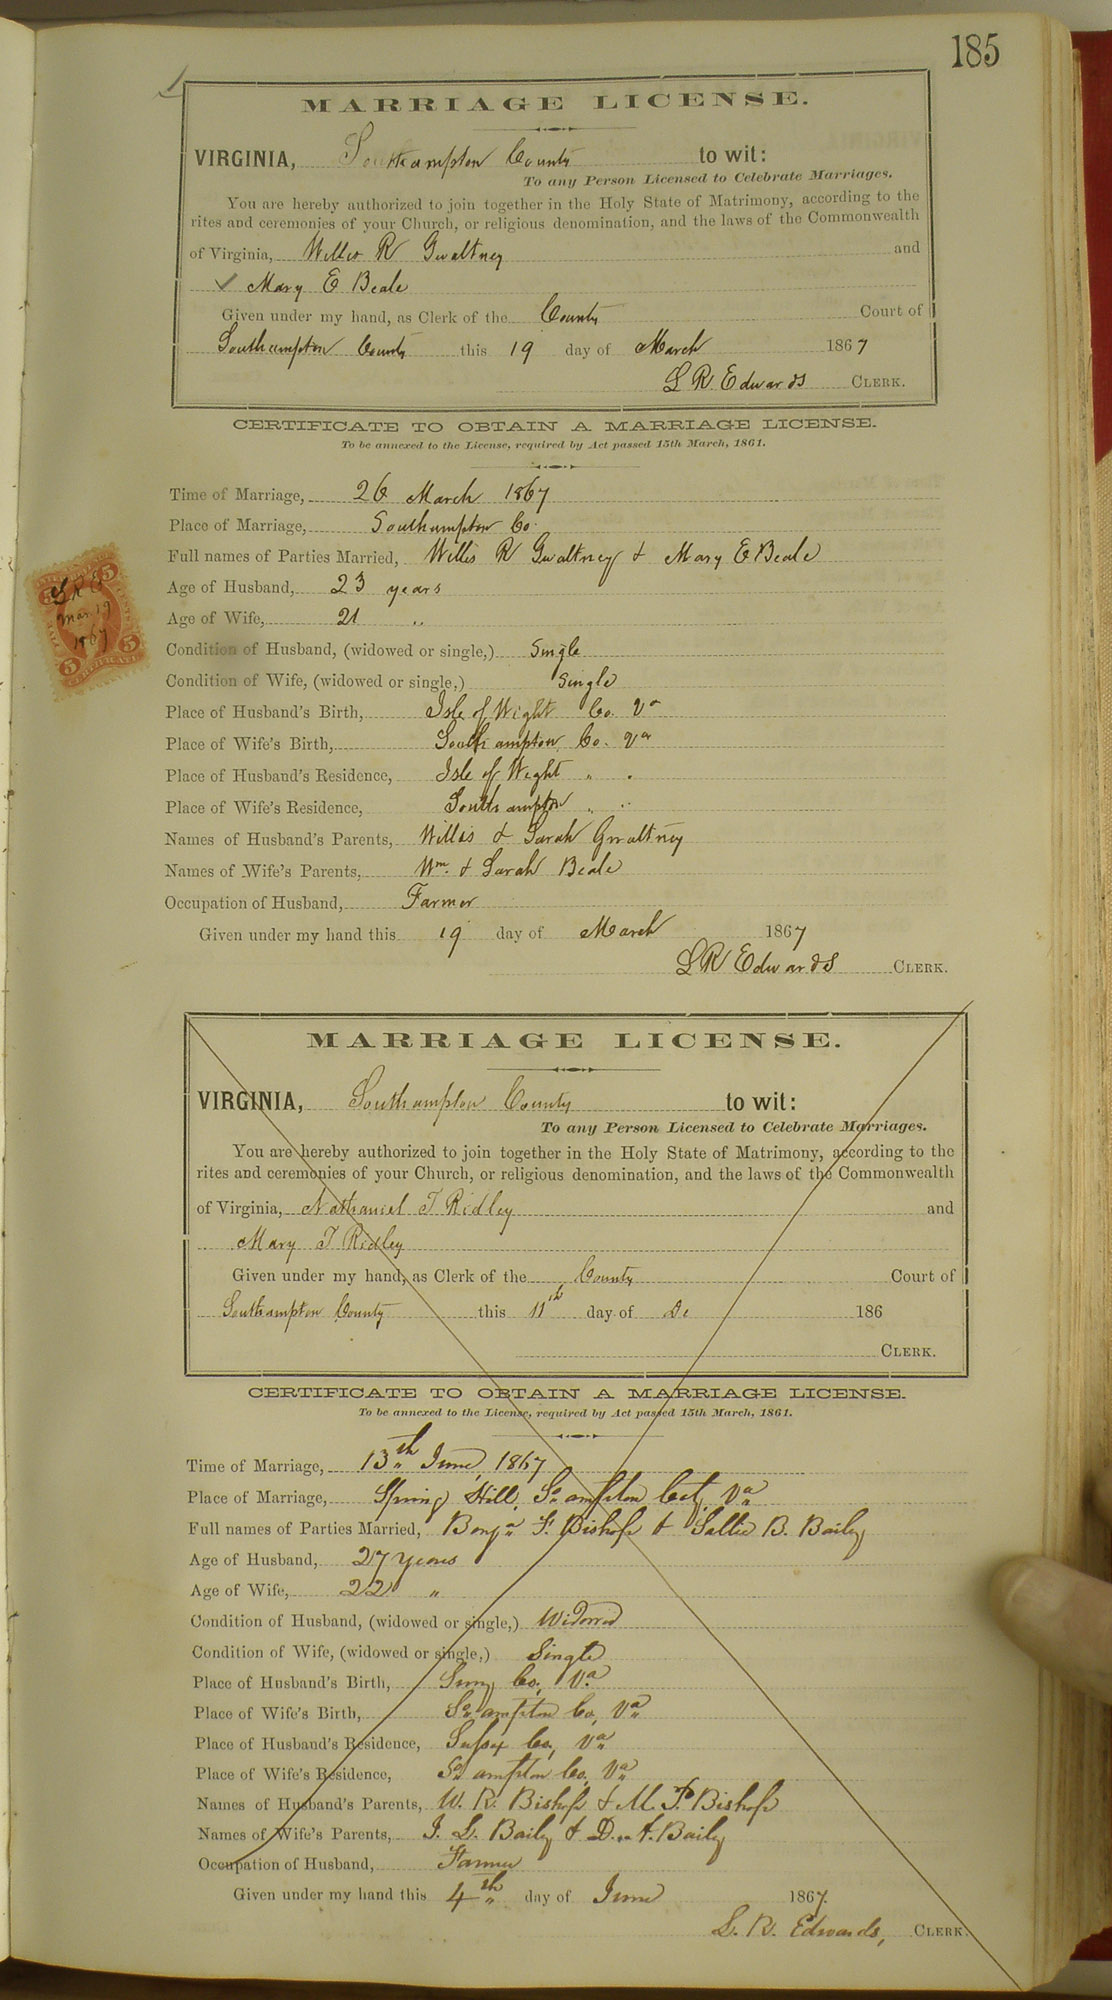 185
MARRIAGE LICENSE.
VIRGINIA, Southampton County to wit:
To any Person Licensed to Celebrate Marriages.
You are hereby authorized to join together in the Holy State of Matrimony, according to the
rites and ceremonies of your Church, or religious denomination, and the laws of the Commonwealth
of Virginia, Willis R Gwaltney and
Mary E Beale
Given under my hand, as Clerk of the County Court of
Southampton County this 19 day of March 1867
L R Edwards CLERK.
CERTIFICATE TO OBTAIN A MARRIAGE LICENSE.
To be annexed to the License, required by Act passed 15th March, 1861.
Time of Marriage, 26 March 1867
Place of Marriage, Southampton Co.
Full names of Parties Married, Willis R Gwaltney & Mary E Beale
Age of Husband, 23 years
Age of Wife, 21 "
Condition of Husband, (widowed or single,) Single
Condition of Wife, (widowed or single,) Single
Place of Husband's Birth, Isle of Wight Co. Va
Place of Wife's Birth, Southampton Co. Va
Place of Husband's Residence, Isle of Wight " "
Place of Wife's Residence, Southampton " "
Names of Husband's Parents, Willis & Sarah Gwaltney
Names of Wife's Parents, Wm. & Sarah Beale
Occupation of Husband, Farmer
Given under my hand this 19 day of March 1867
L R Edwards CLERK.
5 5
L R E
Mar. 19
1867
5 5
CERTIFICATE
MARRIAGE LICENSE.
VIRGINIA, Southampton County to wit:
To any Person Licensed to Celebrate Marriages.
You are hereby authorized to join together in the Holy State of Matrimony, according to the
rites and ceremonies of your Church, or religious denomination, and the laws of the Commonwealth
of Virginia, Nathaniel T Ridley and
Mary T Ridley
Given under my hand, as Clerk of the County Court of
Southampton County this 11th day of De 186
CLERK.
CERTIFICATE TO OBTAIN A MARRIAGE LICENSE.
To be annexed to the License, required by Act passed 15th March, 1861.
Time of Marriage, 13th June, 1867
Place of Marriage, Spring Hill, So.ampton Cty Va
Full names of Parties Married, Benjn F. Bishop & Sallie B. Bailey
Age of Husband, 27 years
Age of Wife, 22 "
Condition of Husband, (widowed or single,) Widowed
Condition of Wife, (widowed or single,) Single
Place of Husband's Birth, Surry Co., Va
Place of Wife's Birth, So.ampton Co, Va
Place of Husband's Residence, Sussex Co, Va
Place of Wife's Residence, So.ampton Co, Va
Names of Husband's Parents, W. R. Bishop & M. P. Bishop
Names of Wife's Parents, J. L. Bailey & D. A. Bailey
Occupation of Husband, Farmer
Given under my hand this 4th day of June 1867.
L. R. Edwards, CLERK.